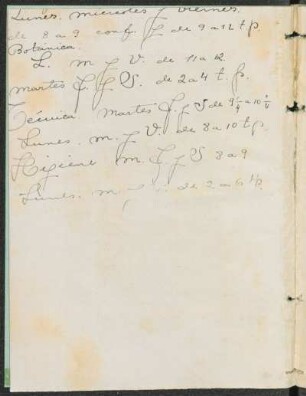 Lunes. miercoles y viernes.
de 8 a 9 conf. y de 9 a 12 t p.
Botánica.
L. m y V. de 11 a 12.
martes J. y S. de 2 a 4 t. p.
Técnica. Martes J. y S de 9½ a 10½
Lunes. m. y V. de 8 a 10 t p.
Higiene m. J. y S 8 a 9
Lunes. m y V. de 2 a